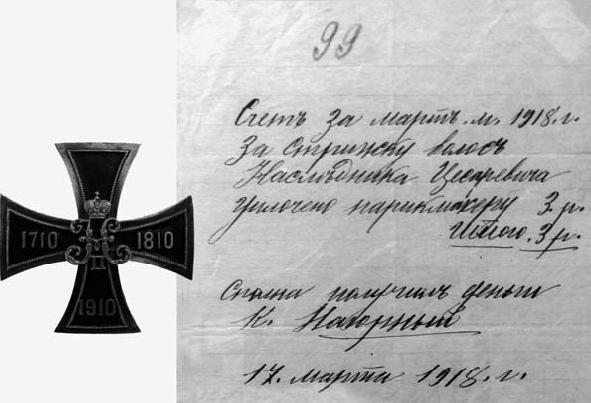 1710
1810
1910
99
Счетъ за мартъ. м. 1918. г.
За стрижку волосъ
Наслѣдника Цесаревича
уплочено парикмахеру 3. р.
Итого. 3 р.
Сполна получилъ деньги
К. Нагорный
17. марта 1918. г.